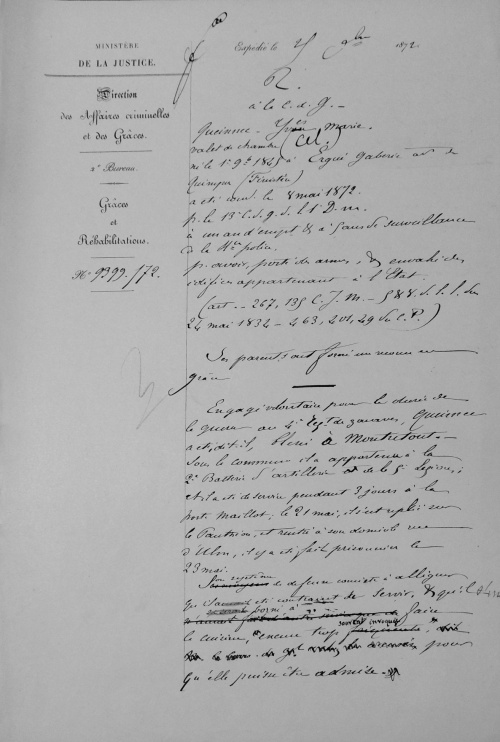 MINISTÈRE
DE LA JUSTICE.
Direction
des Affaires criminelles
et des Grâces.
2e Bureau.
Grâces
et
Réhabilitations.
No 9399/72.
Expédié le 25 9bre 1872.
R.
à la C. d. g. —
Queinnec. Yves Marie.
valet de chambre (Cél.)
né le 1er 9bre 1845 à Ergué Gaberic arr. de
Quimper (Finistère)
a été cond. le 8 mai 1872.
p. le 13e C. d. g. d. l. 1e D. m.
à un an d'empt & à 5 ans de surveillance
de la Hte police.
p. avoir, porté des armes, & envahi des
édifices appartenant à l'État.
(art. — 267, 135 C. J. M. — 5 & 8 d. l. l. du
24 mai 1834 — 463, 401, 49 du C. P.)
Ses parents ont formé un recours en
grâce
Engagé volontaire pour la durée de
la guerre au 4e Régt de zouaves, Queinnec
a été, dit-il, blessé à Montretout —
Sous la commune il a appartenu à la
2e Batterie d'artillerie de la 5e Légion,
et il a été de service pendant 3 jours à la
porte Maillot; le 21 mai, il s'est replié sur
le Panthéon, et rentré à son domicile rue
d'Ulm, il y a été fait prisonnier le
23 mai.
Son système de défense consiste à alléguer
qu'il a été contraint de servir, & qu'il
borné à faire
la cuisine, "excuse trop souvent invoquée"
pour
qu'elle puisse être admise.